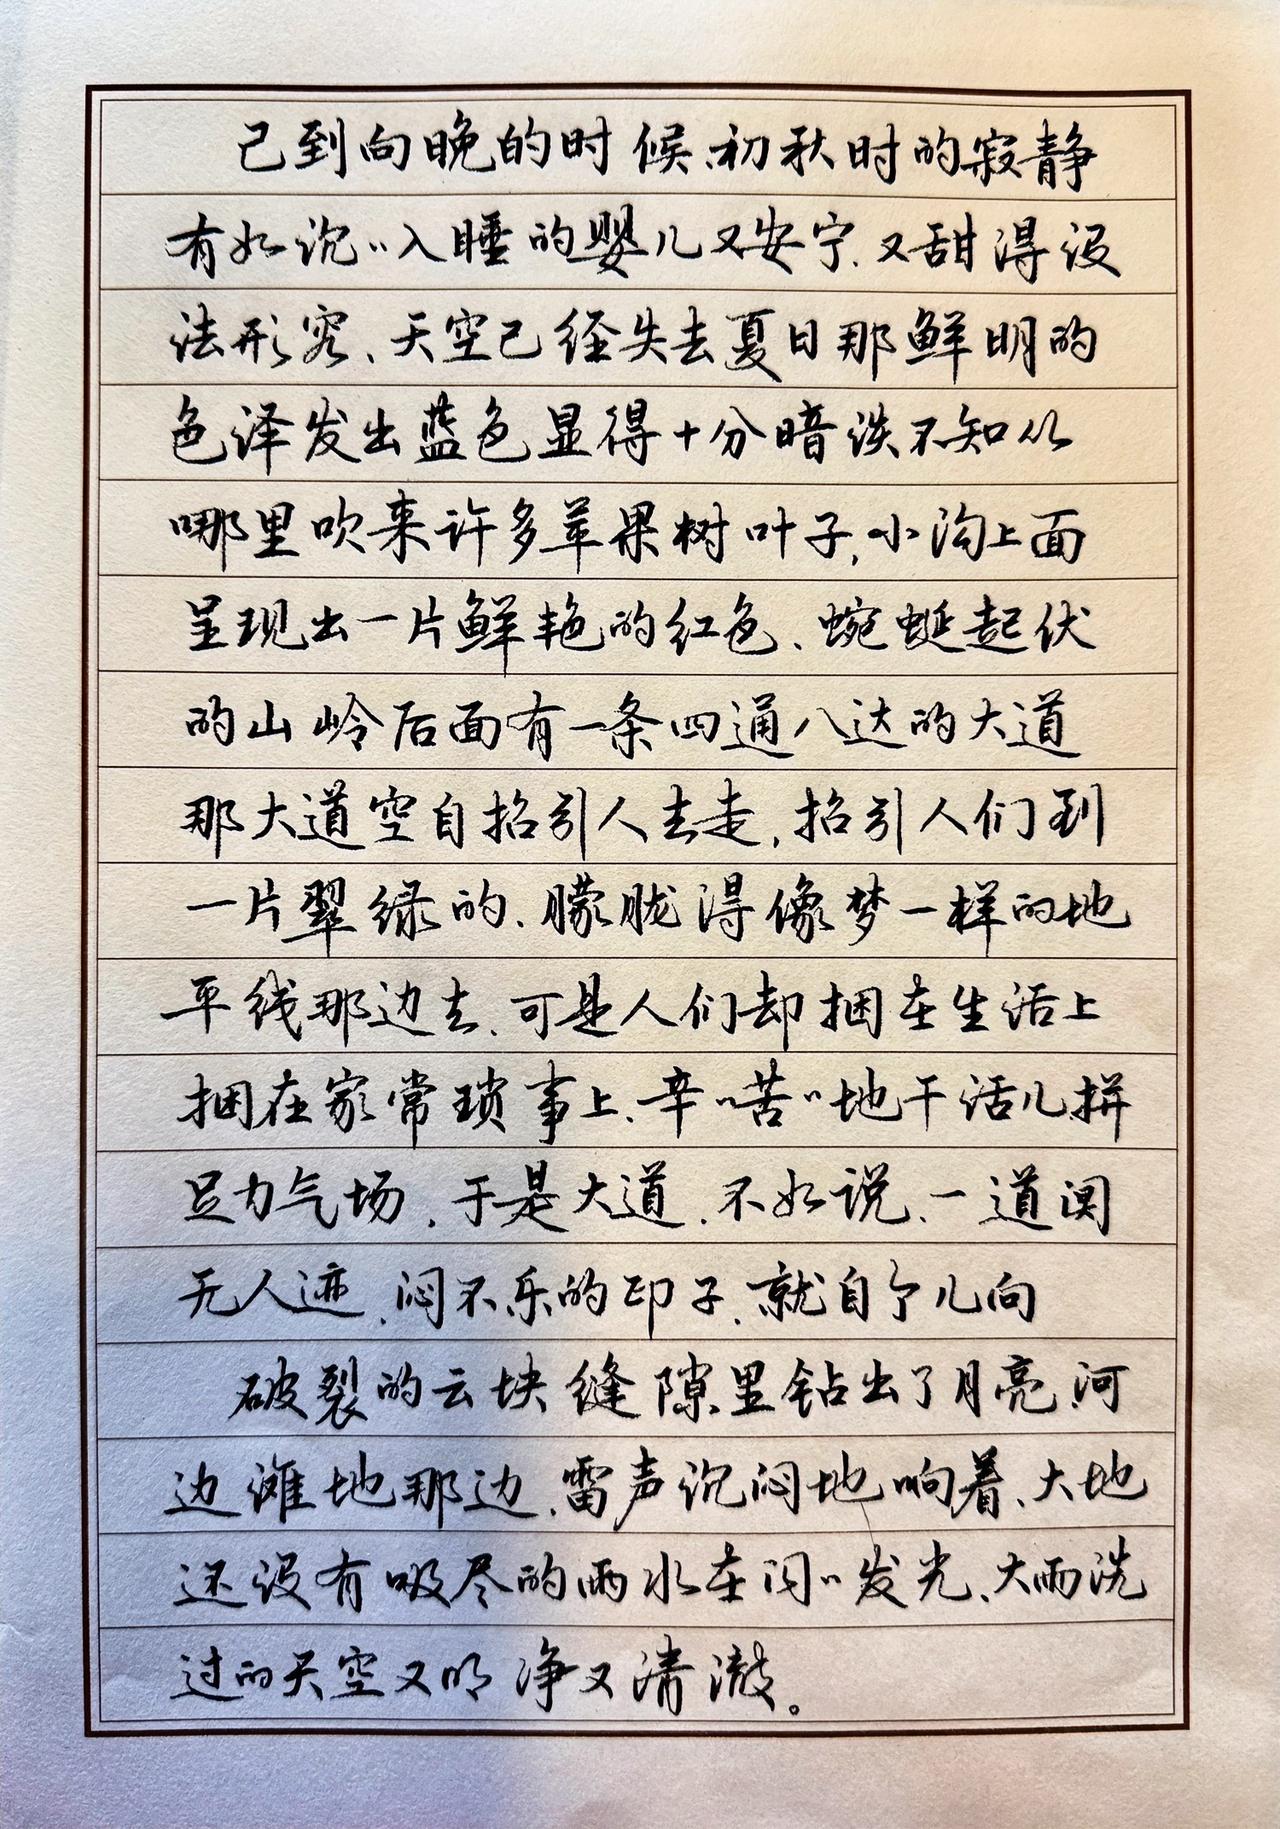 已到向晚的时候、初秋时的寂静
有如沉〃入睡的婴儿又安宁、又甜得没
法形容、天空已经失去夏日那鲜明的
色泽发出蓝色显得十分暗淡不知从
哪里吹来许多苹果树叶子,小沟上面
呈现出一片鲜艳的红色、蜿蜒起伏
的山岭后面有一条四通八达的大道
那大道空自招引人去走,招引人们到
一片翠绿的、朦胧得像梦一样的地
平线那边去、可是人们却捆在生活上
捆在家常琐事上、辛〃苦〃地干活儿、拼
足力气场、于是大道、不如说、一道阒
无人迹、闷不乐的印子、就自个儿向
破裂的云块缝隙里钻出了月亮、河
边滩地那边、雷声沉闷地响着、大地
还没有吸尽的雨水在闪〃发光、大雨洗
过的天空又明净又清澈。